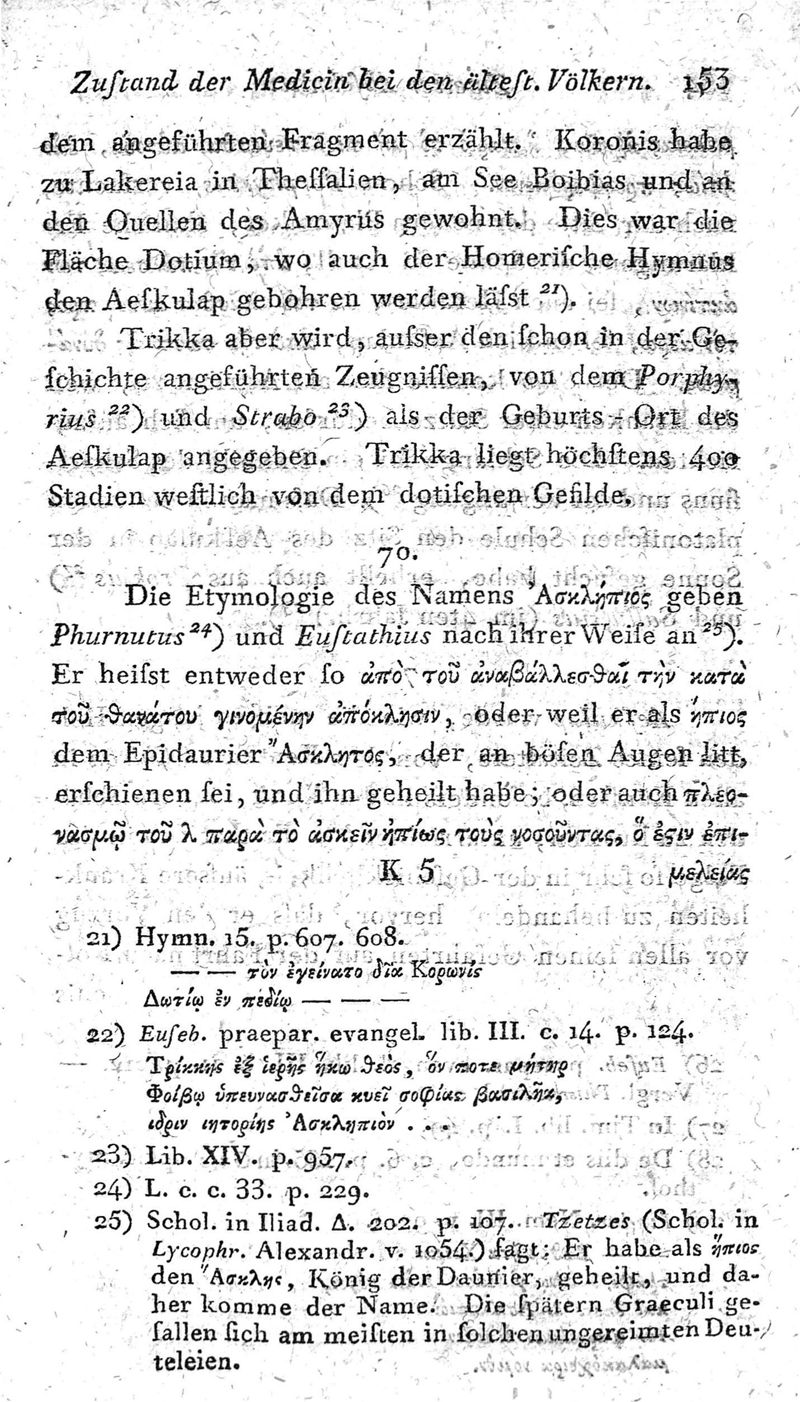 Zuſtand der Medicin bei den älteſt. Völkern. 153
dem angeführten Fragment erzählt. Koronis habe
zu Lakereia in Theſſalien, am See Boibias und an
den Quellen des Amyrus gewohnt. Dies war die
Fläche Dotium, wo auch der Homeriſche Hymnus
den Aeſkulap gebohren werden läſst 21).
Trikka aber wird, auſser den ſchon in der Ge-
ſchichte angeführten Zeugniſſen, von dem Porphy-
rius 22) und Strabo 23) als der Geburts-Ort des
Aeſkulap angegeben. Trikka liegt höchſtens 400
Stadien weſtlich von dem dotiſchen Geſilde.
70.
Die Etymologie des Namens Ἀσκλήπιος geben
Phurnutus 24) und Euſtathius nach ihrer Weiſe an 25).
Er heiſst entweder ſo ἀπὸ τοῦ ἀναβάλλεσθαι τὴν κατὰ
τοῦ θανάτου γινομένην ἀπόκλησιν, oder weil er als ἤπιος
dem Epidaurier Ἀσκλητος, der an böſen Augen litt,
erſchienen ſei, und ihn geheilt habe; oder auch πλεο-
νασμῷ τοῦ λ παρὰ τὸ ἀσκεῖν ἠπίως τοὺς νοσοῦντας, ὅ ἐςιν ἐπι-
K 5 μελείας
21) Hymn. 15. p. 607. 608.
— — τὸν ἐγείνατο δῖα Κορωνὶς
Δωτίῳ ἐν πεδίῳ — — —
22) Euſeb. praepar. evangel. lib. III. c. 14. p. 124.
Τρίκκης ἐξ ἱερῆς ἥκω θεὸς, ὅν ποτε μήτηρ
Φοίβῳ ὑπευνασθεῖσα κυεῖ σοφίας βασιλῆα,
ιδριν ιητορίης Ἀσκληπιὸν . . .
23) Lib. XIV. p. 957.
24) L. c. c. 33. p. 229.
25) Schol. in Iliad. Δ. 202. p. 107. Tzetzes (Schol. in
Lycophr. Alexandr. v. 1054.) ſagt: Er habe als ἤπιος
den Ἄσκλης, König der Daunier, geheilt, und da-
her komme der Name. Die ſpätern Graeculi ge-
fallen ſich am meiſten in ſolchen ungereimten Deu-
teleien.